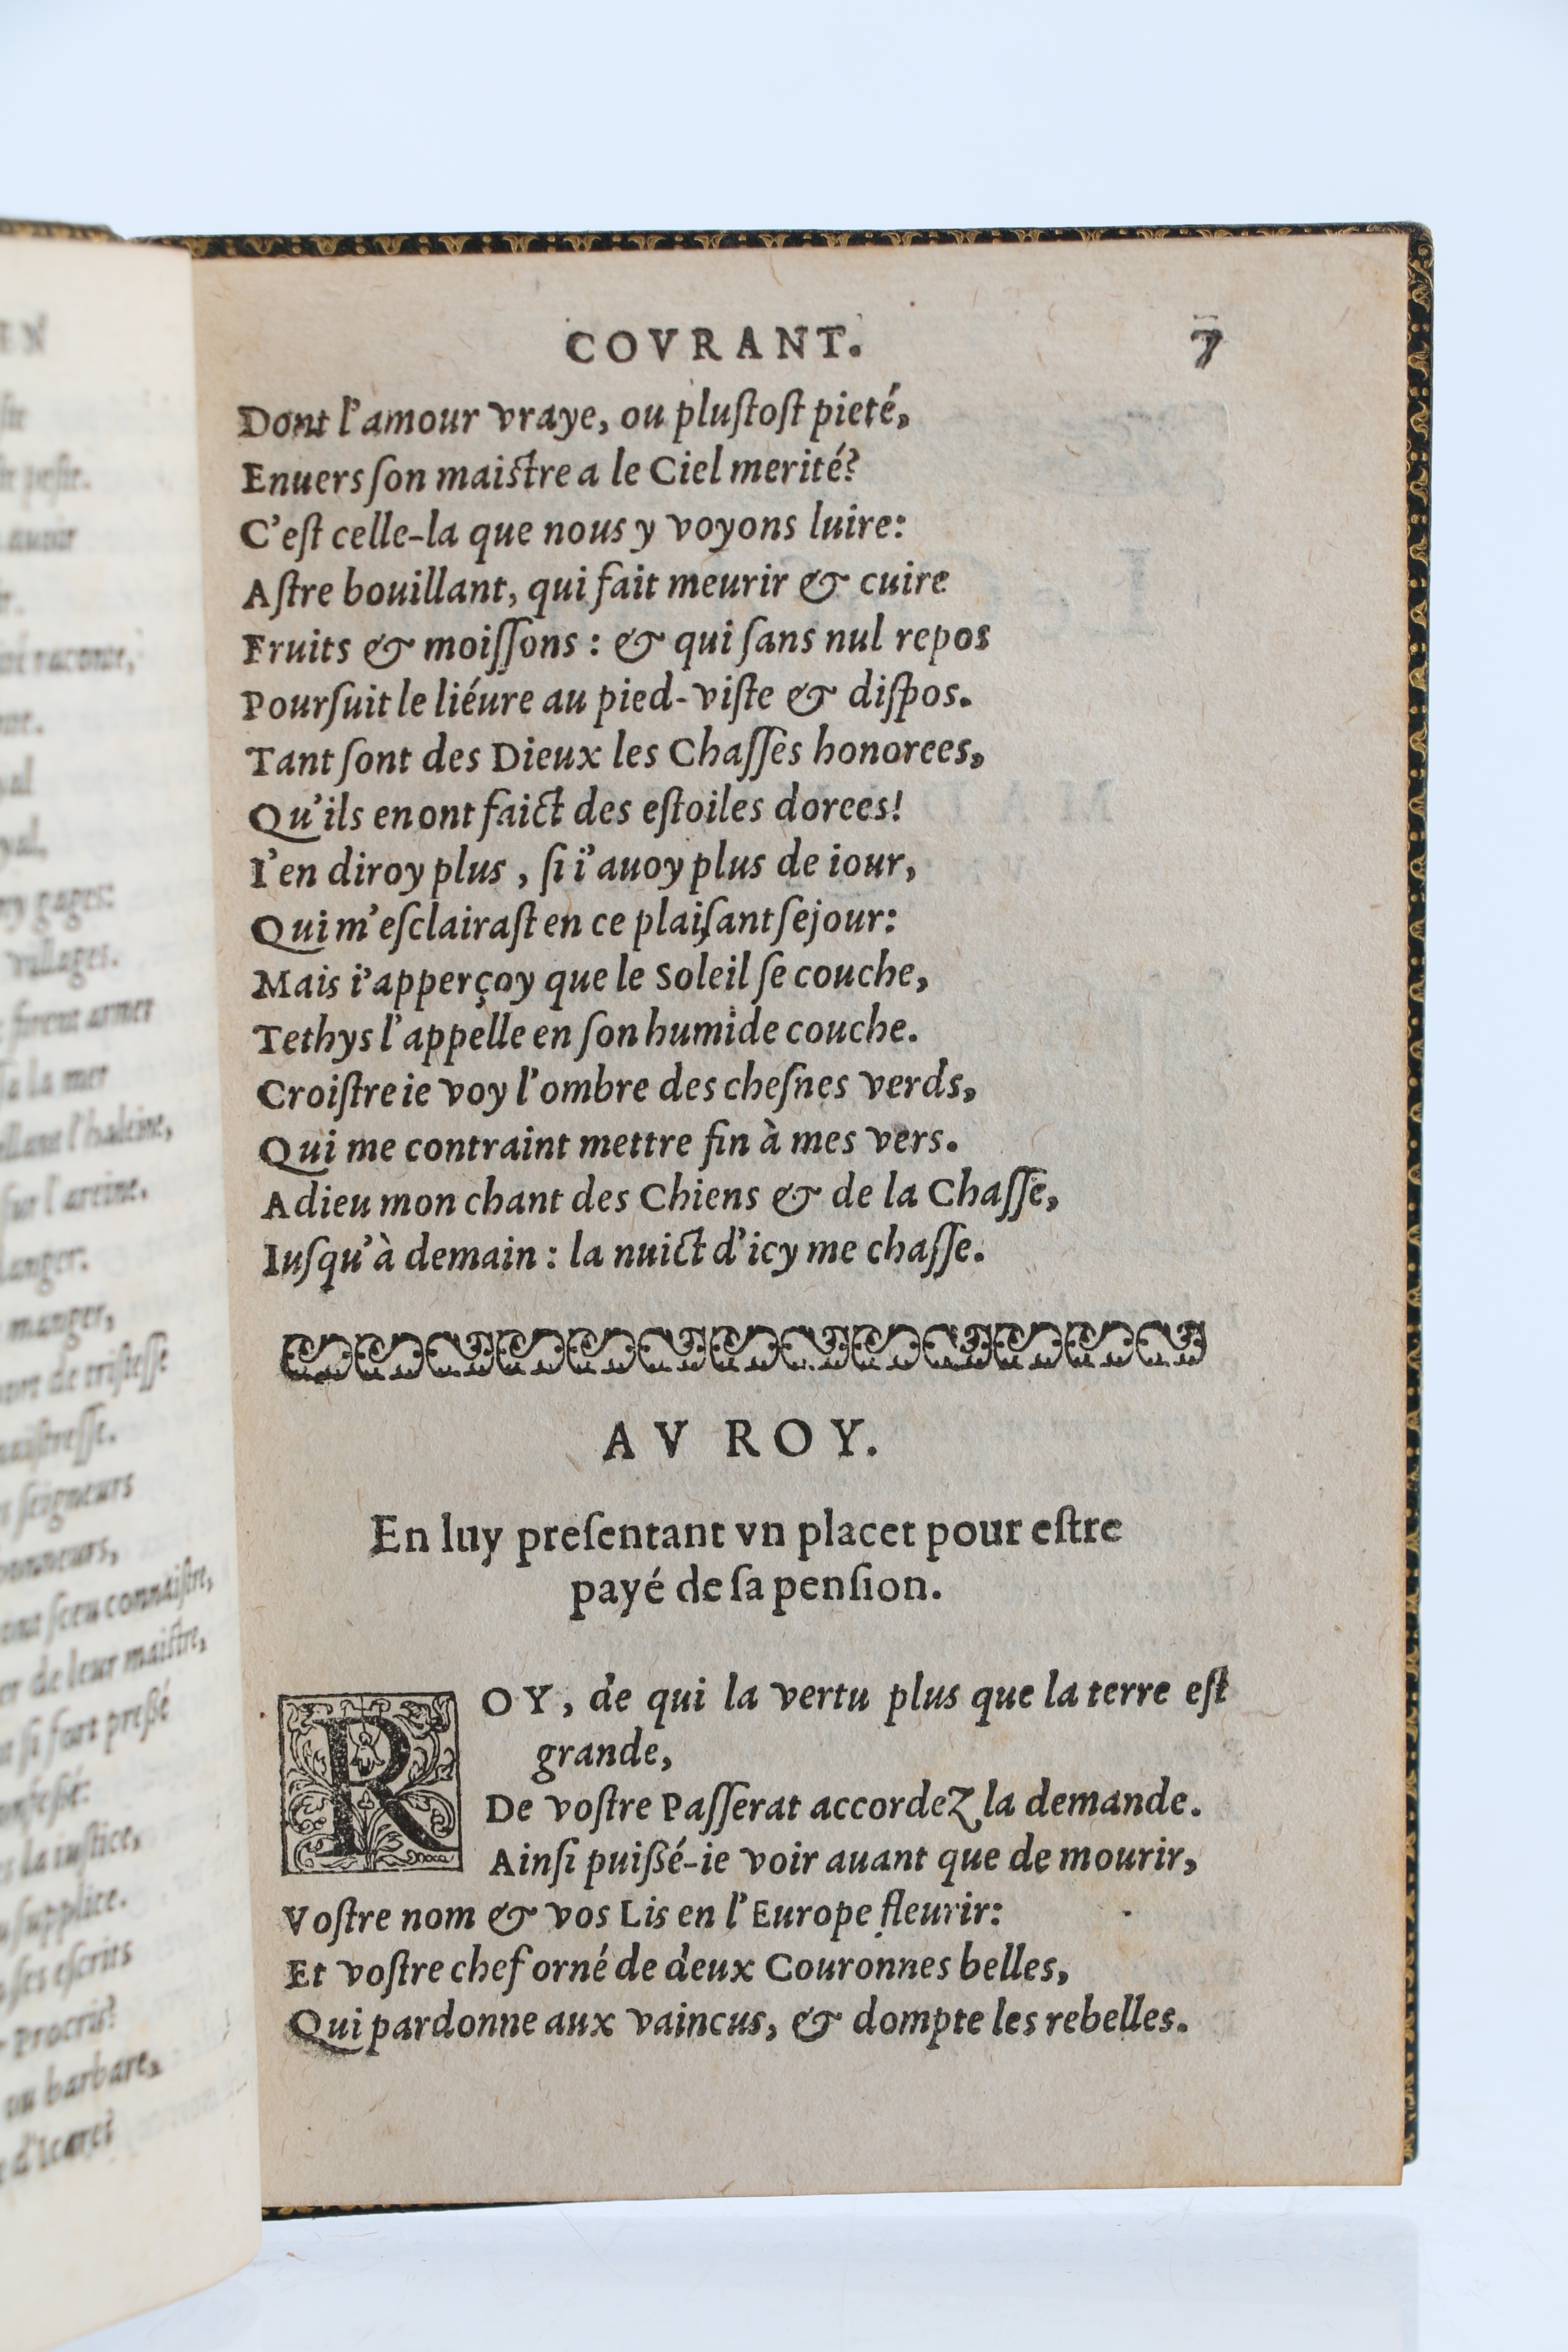 EN
peste.
auoir
raconte,
gages:
villages.
furent armer
la mer
l'haleine,
sur l'areine.
manger,
de tristesse
seigneurs
honneurs,
sceu connaiſtre,
de leur maiſtre,
si fort preßé
confeßé:
la iuſtice,
ſupplice.
ſes eſcrits
Procris?
ou barbare,
d'Icare?
COVRANT. 7
Dont l'amour vraye, ou pluſtoſt pieté,
Enuers ſon maiſtre a le Ciel merité?
C'eſt celle-la que nous y voyons luire:
Aſtre bouillant, qui fait meurir & cuire
Fruits & moiſſons : & qui ſans nul repos
Pourſuit le liéure au pied-viſte & diſpos.
Tant ſont des Dieux les Chaſſes honorees,
Qu'ils en ont faict des eſtoiles dorees!
I'en diroy plus , ſi i'auoy plus de iour,
Qui m'eſclairaſt en ce plaiſant ſejour:
Mais i'apperçoy que le Soleil ſe couche,
Tethys l'appelle en ſon humide couche.
Croiſtre ie voy l'ombre des cheſnes verds,
Qui me contraint mettre fin à mes vers.
Adieu mon chant des Chiens & de la Chaſſe,
Iuſqu'à demain : la nuict d'icy me chaſſe.
AV ROY.
En luy preſentant vn placet pour eſtre
payé de ſa penſion.
ROY, de qui la vertu plus que la terre eſt
grande,
De voſtre Paſſerat accordez la demande.
Ainſi puißé-ie voir auant que de mourir,
Voſtre nom & vos Lis en l'Europe fleurir:
Et voſtre chef orné de deux Couronnes belles,
Qui pardonne aux vaincus, & dompte les rebelles.